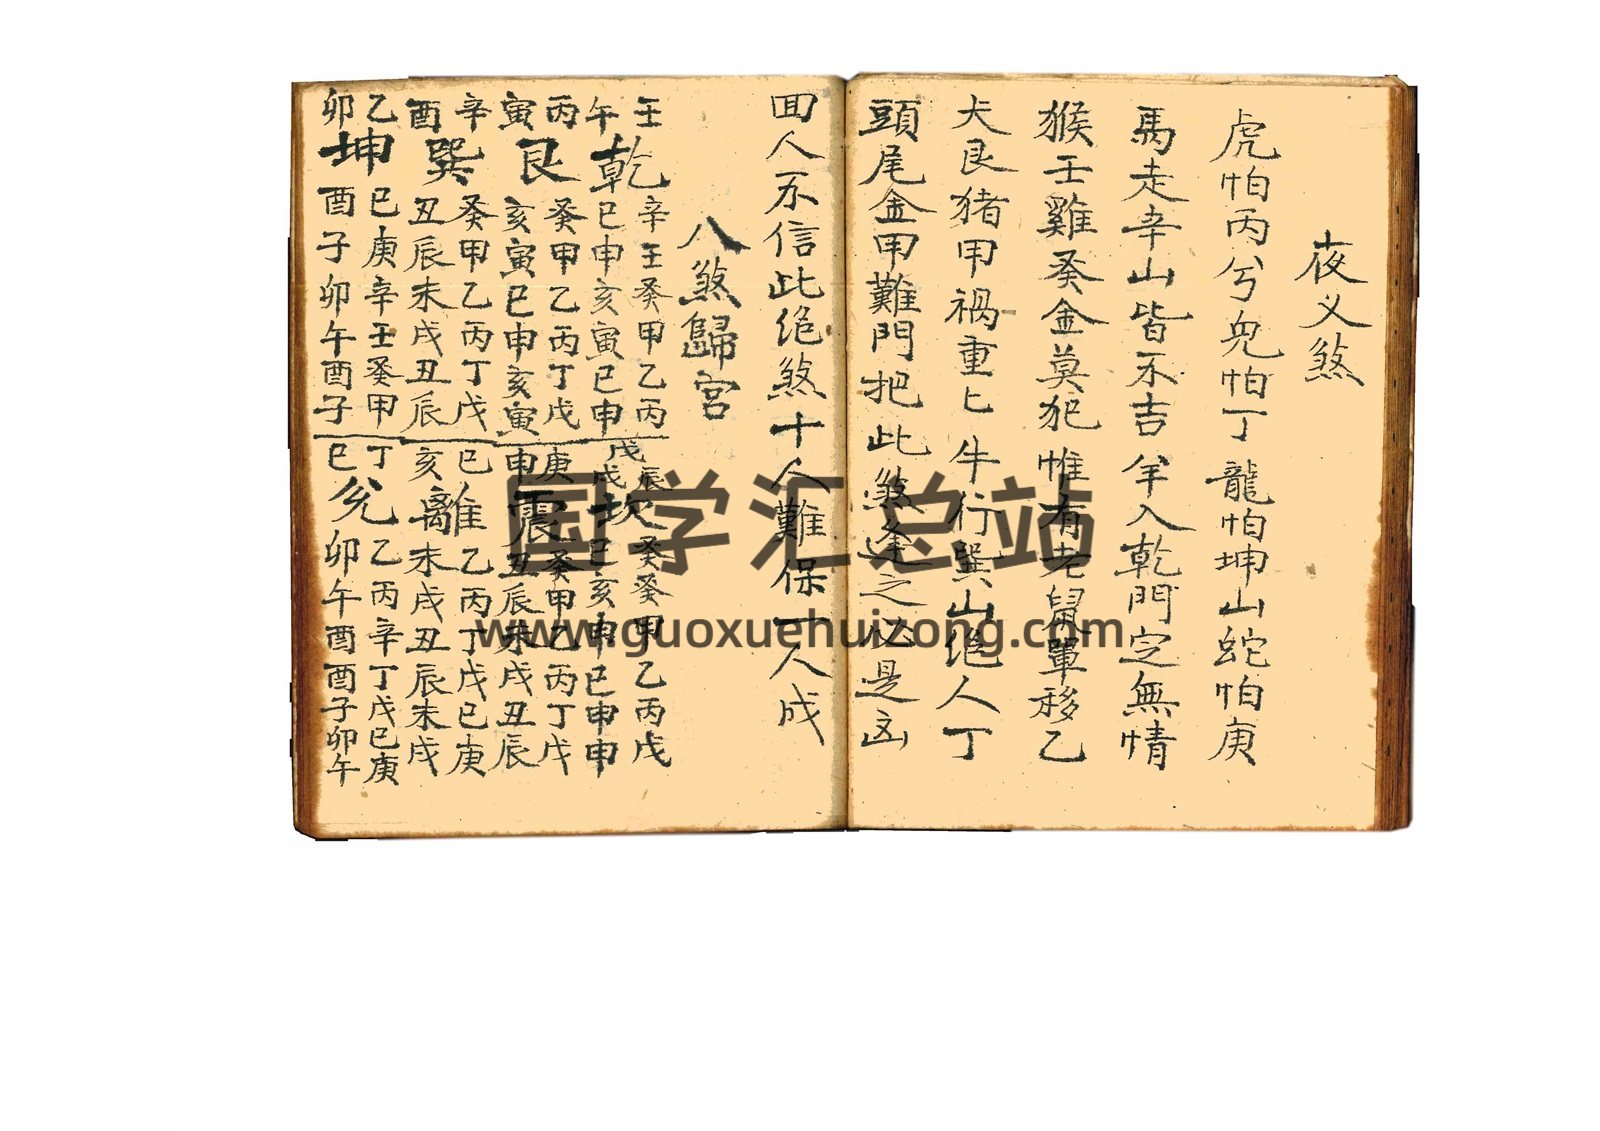 夜乂煞
虎怕丙兮兔怕丁龍怕坤山蛇怕庚
馬走辛山皆不吉羊入乾門定無情
猴壬雞癸金莫犯惟有老鼠單移乙
犬艮猪甲禍重匕牛行巽山绝人丁
頭尾金甲難門把此煞逢之必是凶
囬人不信此绝煞十人難保一人成
八煞歸宮
壬午乾辛壬癸甲乙丙
巳申亥寅巳申
丙寅艮癸甲乙丙丁戊
亥寅巳申亥寅
辛酉巽癸甲乙丙丁戊
丑辰未戌丑辰
乙卯坤巳庚辛壬癸甲
酉子卯午酉子
戊辰戊戌坎癸癸甲乙丙戊
巳亥申巳申申
庚申震癸甲乙丙丁戊
丑辰未戌丑辰
巳亥離乙丙丁戊巳庚
未戌丑辰未戌
丁巳兌乙丙辛丁戊巳庚
卯午酉酉子卯午
国学汇总站
www.guoxuehuizong.com